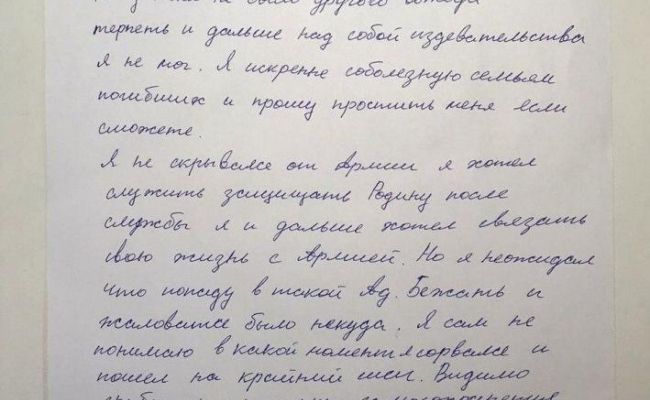 не было другого выхода
терпеть и дальше над собой издевательства
я не мог. Я искренне соболезную семьям
погибших и прошу простить меня если
сможете.
Я не скрывался от Армии я хотел
служить защищать Родину после
службы я и дальше хотел связать
свою жизнь с Армией. Но я неожидал
что попаду в такой Ад. Бежать и
жаловатся было некуда. Я сам не
понимаю в какой момент я сорвался и
пошел на крайний шаг. Видимо